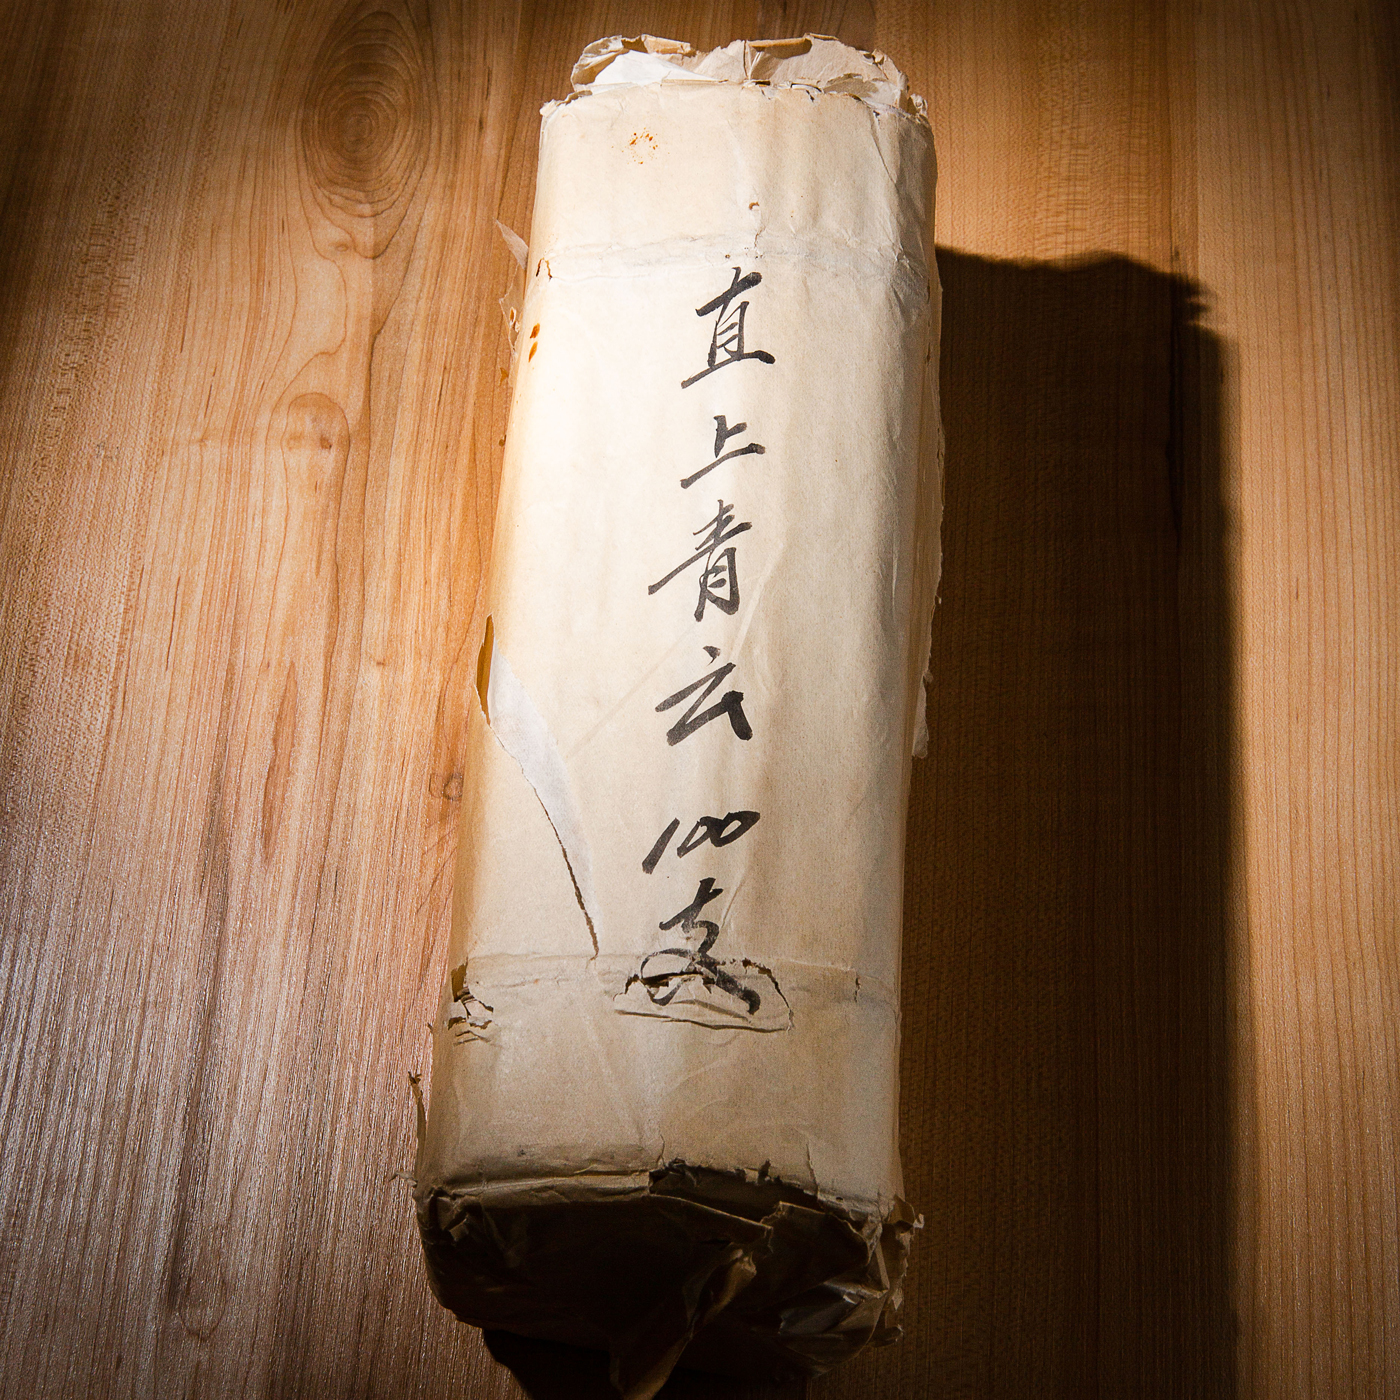 直上青云 100支